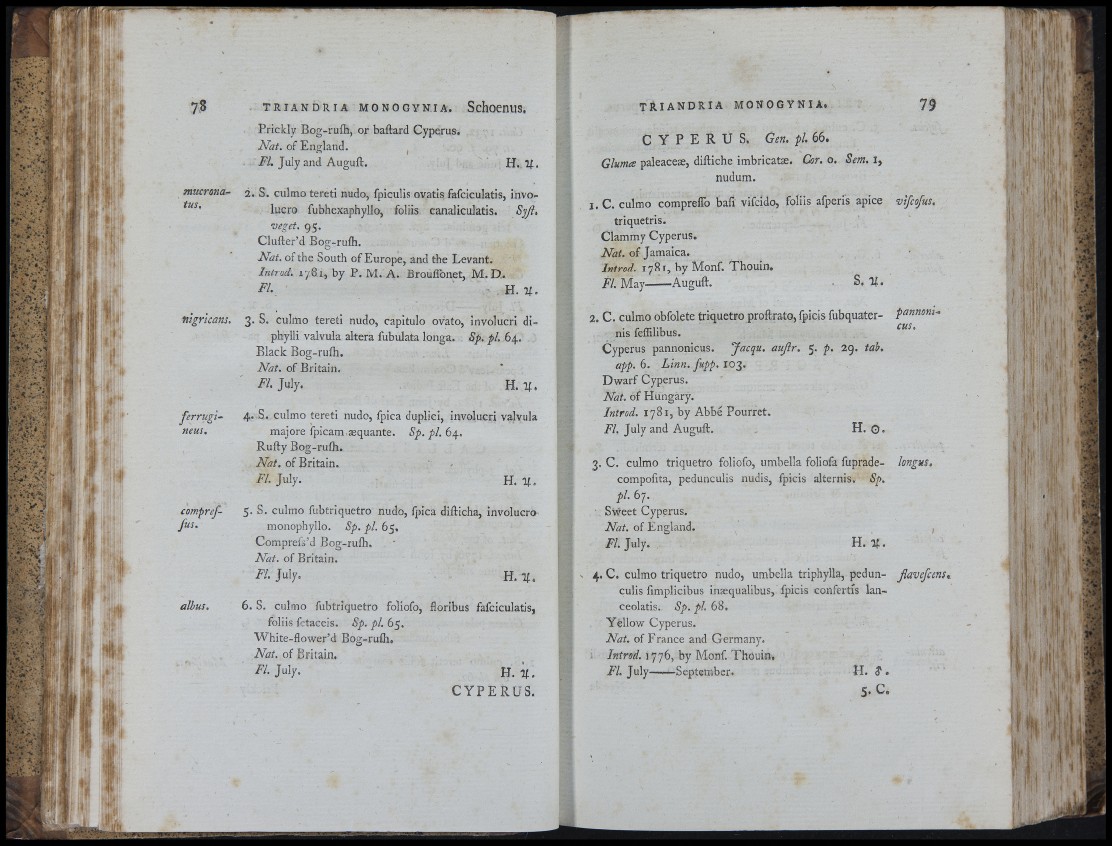 78 TRIANDRIA MONOGYNIA. Schoenus.
Prickly Bog-ruſh, or baſtard Cyperus.
Nat. of England.
Fl. July and Auguſt. H. ♃.
mucrona- 2. S. culmo tereti nudo, ſpiculis ovatis faſciculatis, invo-
tus. lucro ſubhexaphyllo, foliis canaliculatis. Syſt.
veget. 95.
Cluſter'd Bog-ruſh.
Nat. of the South of Europe, and the Levant.
Introd. 1781, by P. M. A. Brouſſonet, M. D.
Fl. H. ♃.
nigricans. 3. S. culmo tereti nudo, capitulo ovato, involucri di-
phylli valvula altera ſubulata longa. Sp. pl. 64.
Black Bog-ruſh.
Nat. of Britain.
Fl. July. H. ♃.
ferrugi- 4. S. culmo tereti nudo, ſpica duplici, involucri valvula
neus. majore ſpicam æquante. Sp. pl. 64.
Ruſty Bog-ruſh.
Nat. of Britain.
Fl. July. H. ♃.
compreſ- 5. S. culmo ſubtriquetro nudo, ſpica diſticha, involucro
ſus. monophyllo. Sp. pl. 65.
Compreſs'd Bog-ruſh.
Nat. of Britain.
Fl. July. H. ♃.
albus. 6. S. culmo ſubtriquetro folioſo, floribus faſciculatis,
foliis ſetaceis. Sp. pl. 65.
White-flower'd Bog-ruſh.
Nat. of Britain.
Fl. July. H. ♃.
CYPERUS.
TRIANDRIA MONOGYNIA. 79
CYPERUS. Gen. pl. 66.
Glumæ paleaceæ, diſtiche imbricatæ. Cor. 0. Sem. 1,
nudum.
1. C. culmo compreſſo baſi viſcido, foliis aſperis apice viſcoſus.
triquetris.
Clammy Cyperus.
Nat. of Jamaica.
Introd. 1781, by Monſ. Thouin.
Fl. May——Auguſt. S. ♃.
2. C. culmo obſolete triquetro proſtrato, ſpicis ſubquater- pannoni-
nis ſeſſilibus. cus.
Cyperus pannonicus. Jacqu. auſtr. 5. p. 29. tab.
app. 6. Linn. ſupp. 103.
Dwarf Cyperus.
Nat. of Hungary.
Introd. 1781, by Abbé Pourret.
Fl. July and Auguſt. H. ☉.
3. C. culmo triquetro folioſo, umbella folioſa ſuprade- longus.
compoſita, pedunculis nudis, ſpicis alternis. Sp.
pl. 67.
Sweet Cyperus.
Nat. of England.
Fl. July. H. ♃.
4. C. culmo triquetro nudo, umbella triphylla, pedun- flaveſcens.
culis ſimplicibus inæqualibus, ſpicis confertis lan-
ceolatis. Sp. pl. 68.
Yellow Cyperus.
Nat. of France and Germany.
Introd. 1776, by Monſ. Thouin.
Fl. July——September. H. ♂.
5. C.